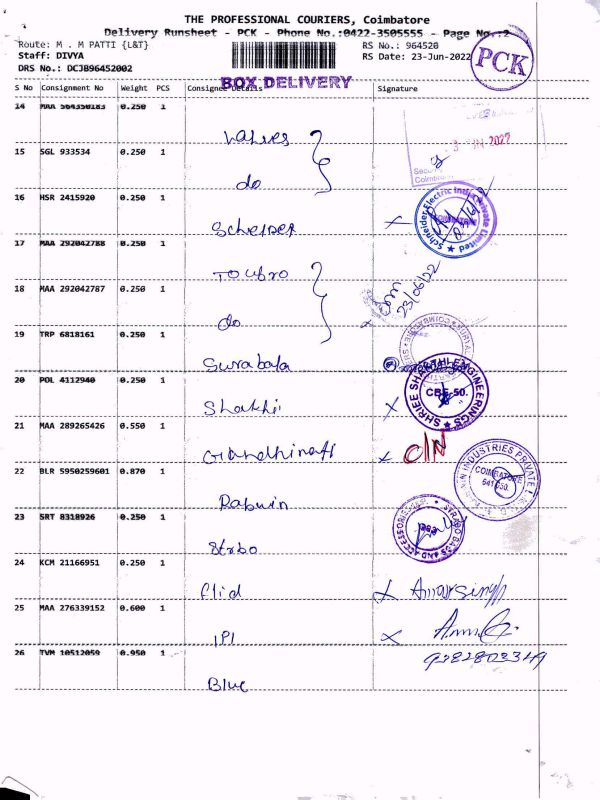 THE PROFESSIONAL COURIERS, Coimbatore
Delivery Runsheet - PCK - Phone No.:0422-3505555 - Page No.:2
Route: M . M PATTI {L&T} RS No.: 964520
Staff: DIVYA RS Date: 23-Jun-2022
DRS No.: DCJB96452002
PCK
BOX DELIVERY
S No Consignment No Weight PCS Consignee Details Signature
14 MAA 564350183 0.250 1
Valves
2022
15 SGL 933534 0.250 1
do
Coimbatore
16 HSR 2415920 0.250 1
Schneider Electric India Private Limited
17 MAA 292042788 0.250 1
TOUBRO
18 MAA 292042787 0.250 1
23/06/22
do
19 TRP 6818161 0.250 1
Surabala
20 POL 4112940 0.250 1
SHRIEE SHAKTHI ENGINEERINGS
CBE-50.
Shakhi
21 MAA 289265426 0.550 1
22 BLR 5950259601 0.870 1
INDUSTRIES PRIVATE
COIMBATORE
641 050.
23 SRT 8318926 0.250 1
STRABO BAGS AND ACCESSORIES
Strbo
24 KCM 21166951 0.250 1
Amarsingh
25 MAA 276339152 0.600 1
IPI
26 TVM 10512059 0.950 1
Blue